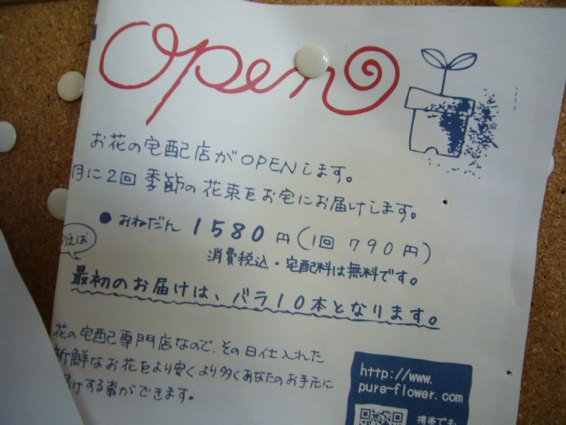 Open
お花の宅配店がOPENします。
月に2回 季節の花束をお宅にお届けします。
● おねだん 1580円(1回 790円)
消費税込・宅配料は無料です。
えば
最初のお届けは、バラ10本となります。
花の宅配専門店なので、その日仕入れた
新鮮なお花をより安くより多くあなたのお手元に
けする事ができます。
http://www.
pure-flower.com
携帯でも